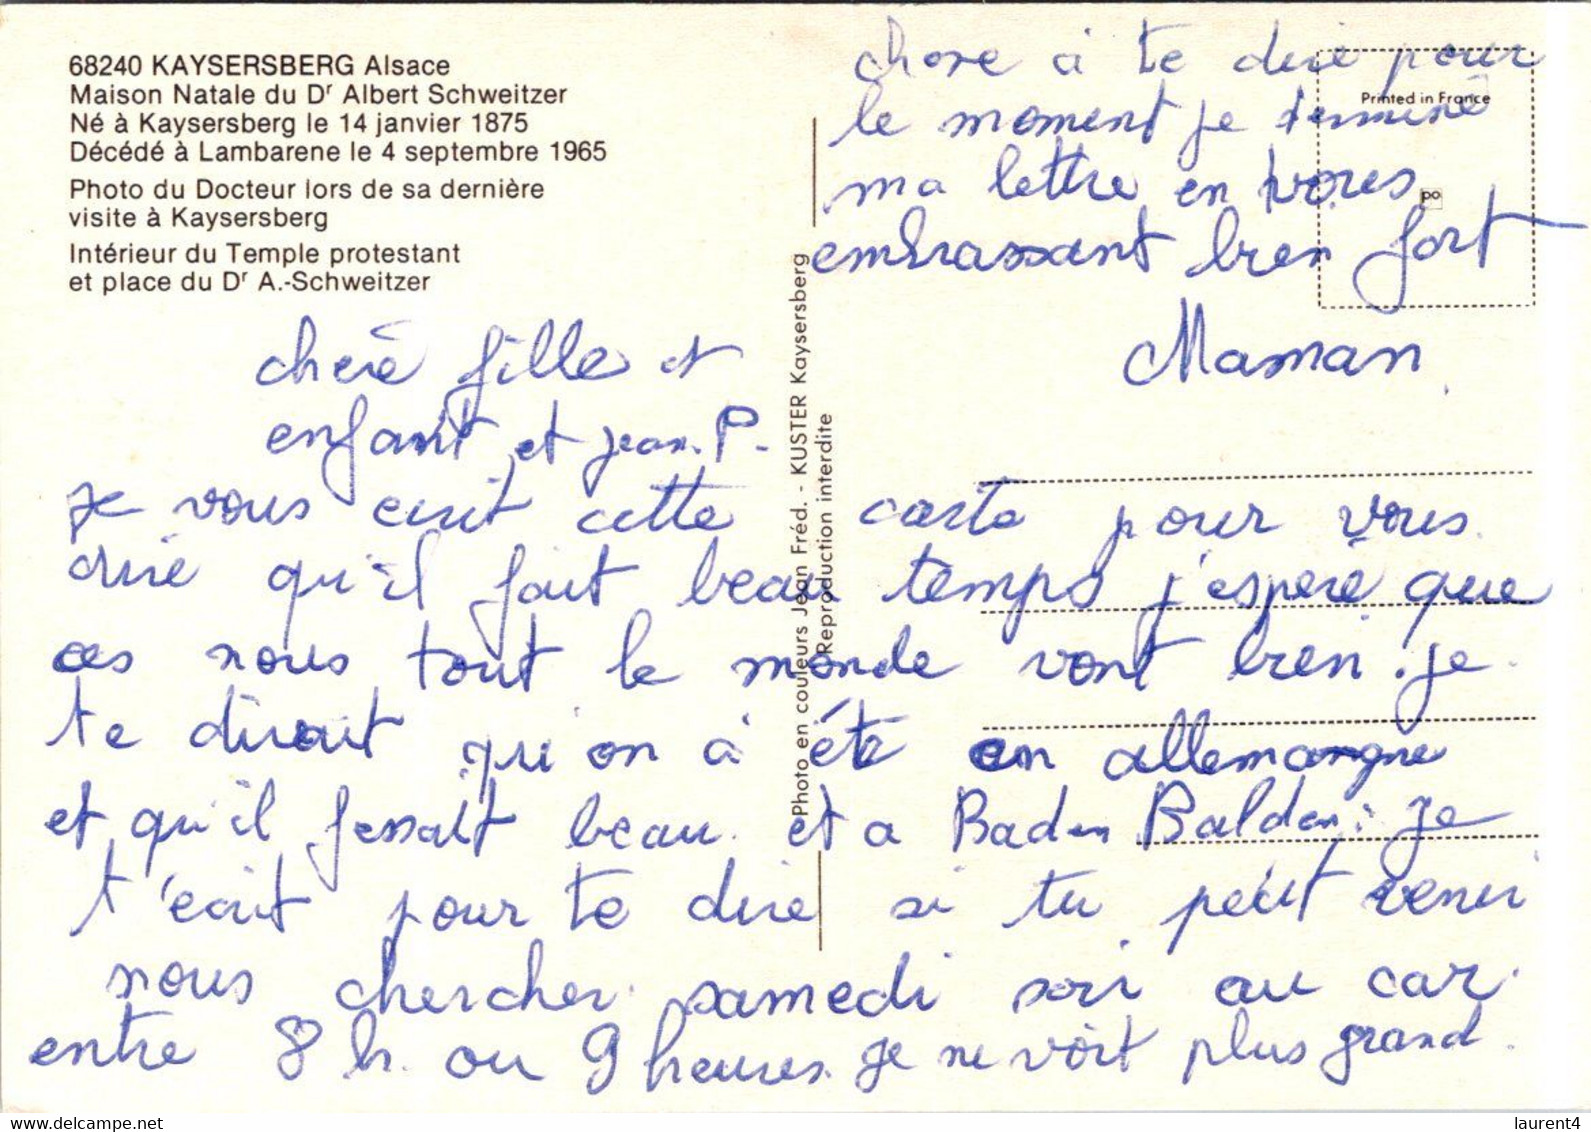 68240 KAYSERSBERG Alsace
Maison Natale du Dr Albert Schweitzer
Né à Kaysersberg le 14 janvier 1875
Décédé à Lambarene le 4 septembre 1965
Photo du Docteur lors de sa dernière
visite à Kaysersberg
Intérieur du Temple protestant
et place du Dr A.-Schweitzer
Photo en couleurs Jean Fréd. - KUSTER Kaysersberg
Reproduction interdite
Printed in France
po
cheré fille et
enfant et jean. P.
je vous ecrit cette carte pour vous
dire qu'il fait beau temps j'espere que
ces nous tout le monde vont bien. je
te dirait qui on à été en allemangne
et qu'il fessait beau. et a Baden Balden. je
t'ecrit pour te dire si tu peut venir
nous chercher samedi soir au car.
entre 8 h. ou 9 heures. je ne voit plus grand.
chose à te dire pour
le moment je terminé
ma lettre en vous
embrassant bien fort
Maman
laurent4